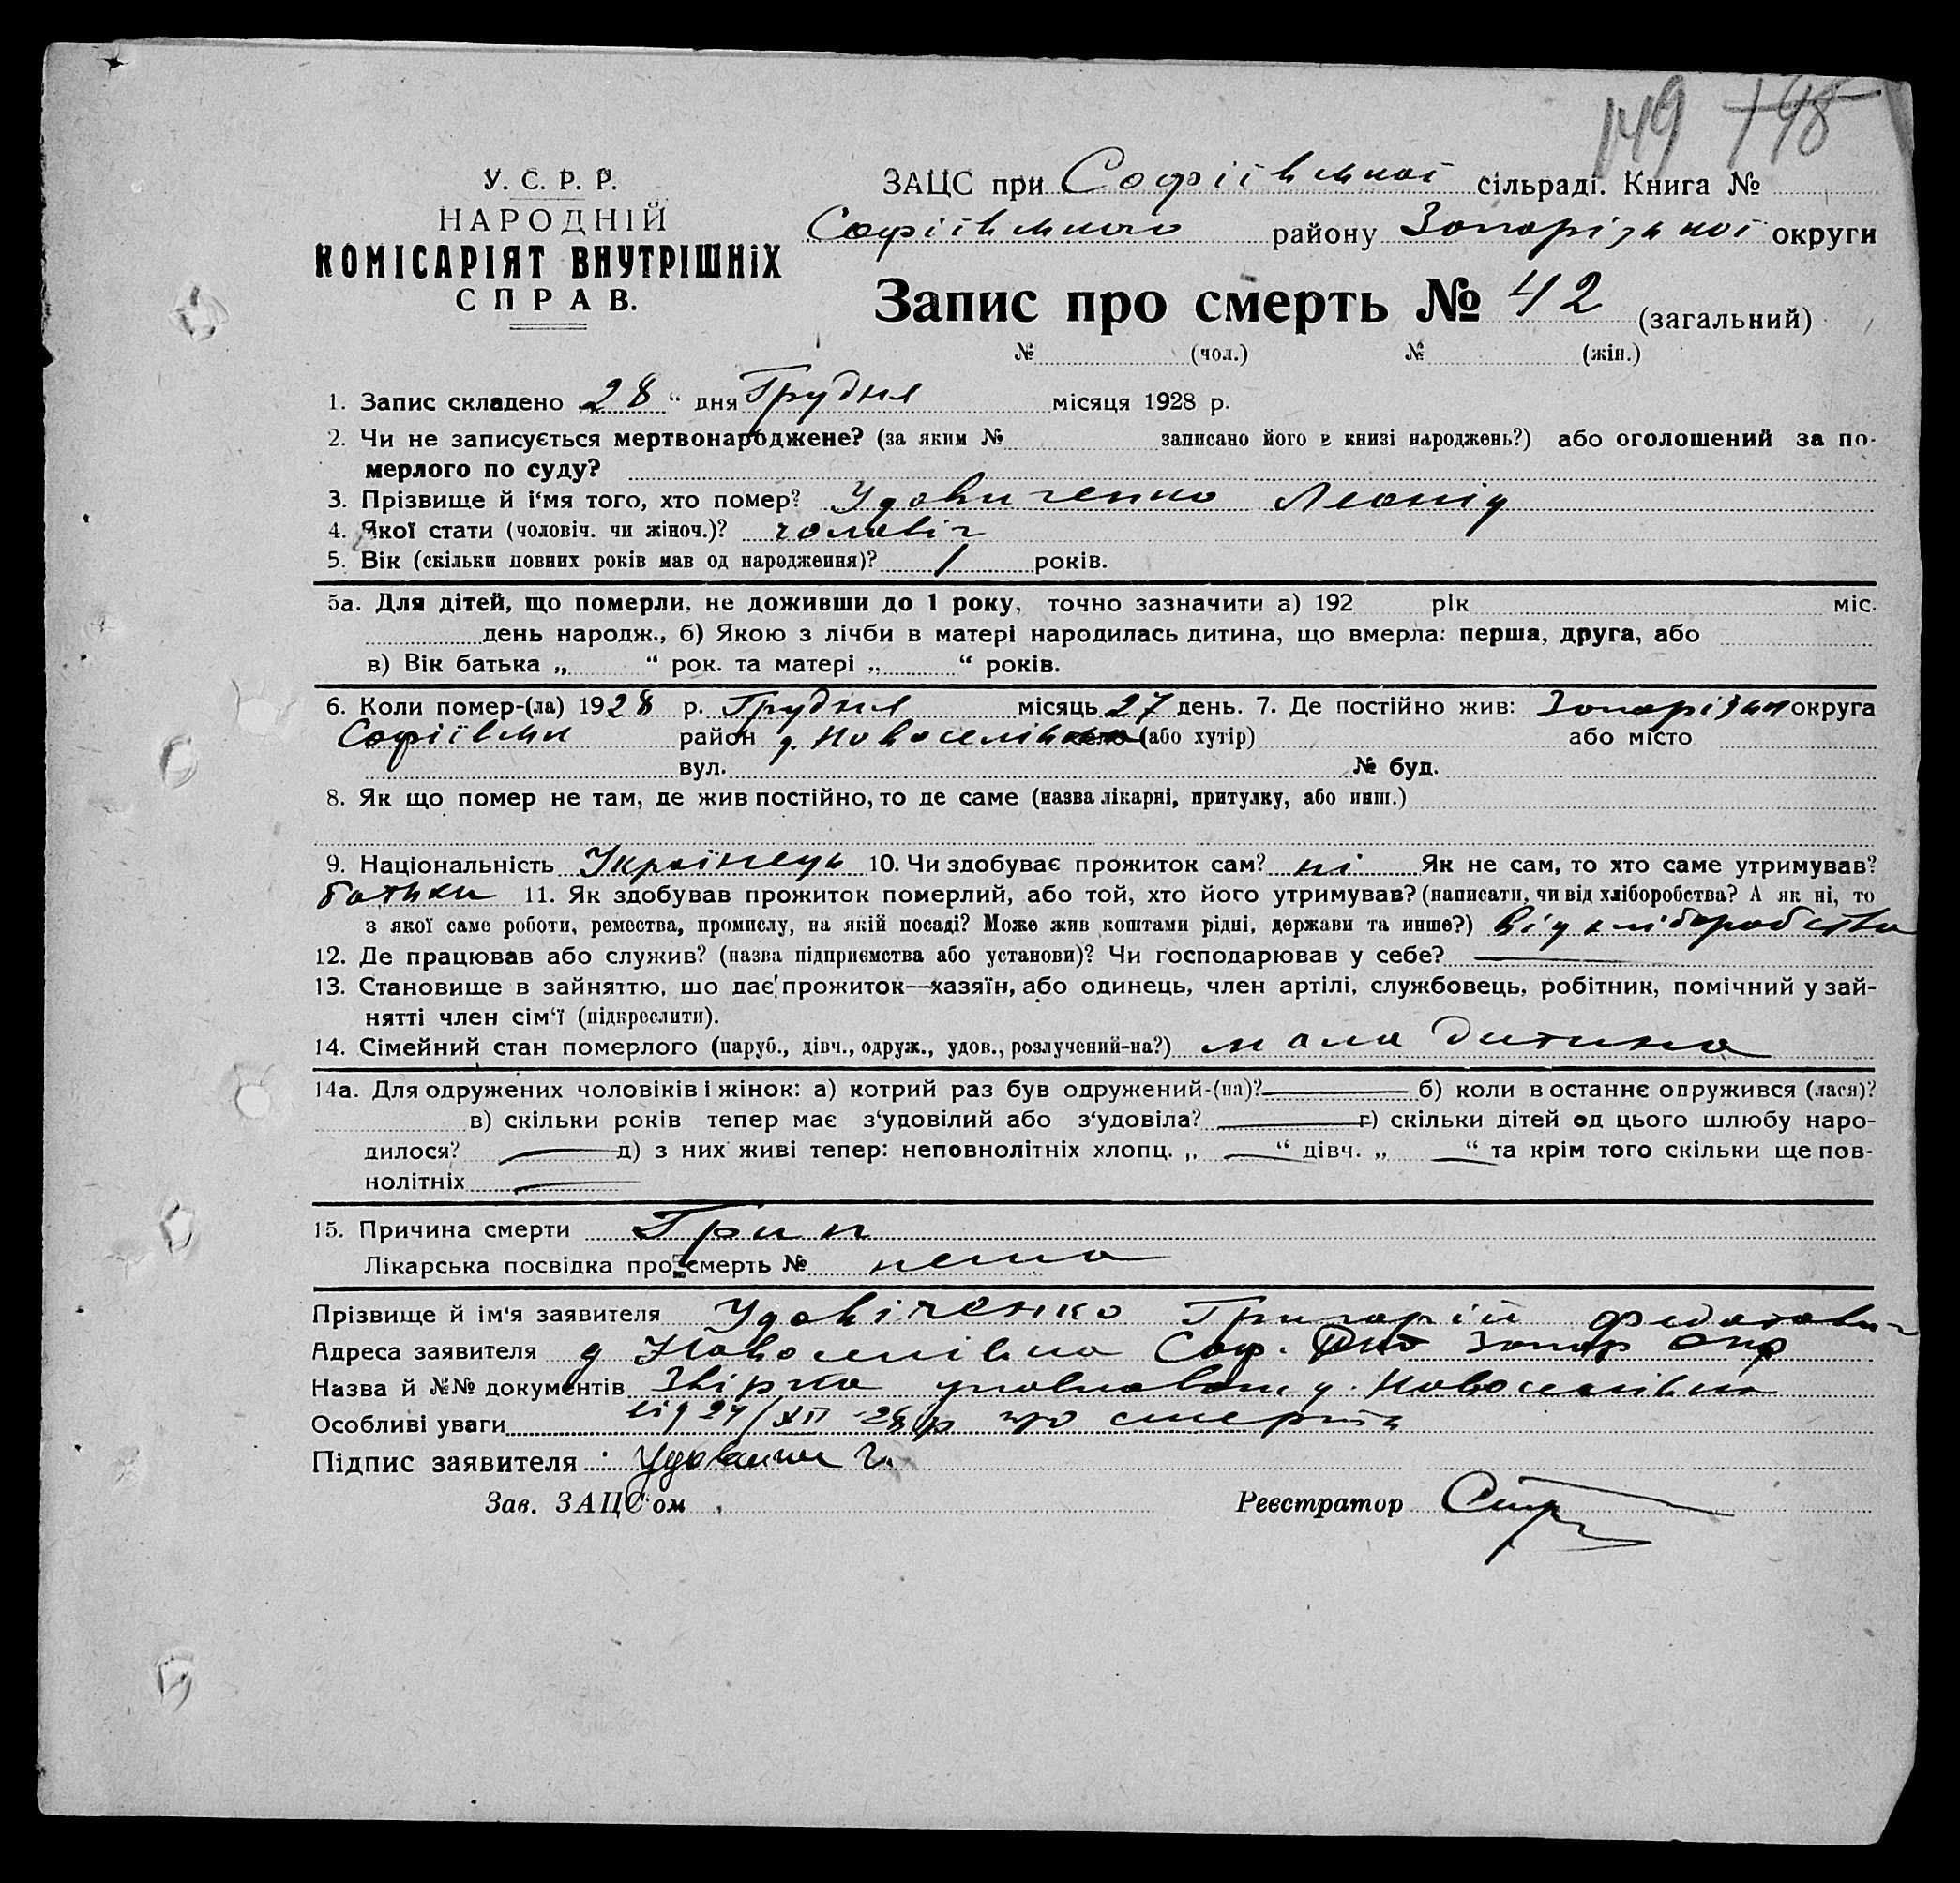 149 148
У. С. Р. Р.
НАРОДНІЙ
КОМІСАРІЯТ ВНУТРІШНІХ
СПРАВ.
ЗАЦС при Софіївської сільраді. Книга №
Софіївського району Запорізької округи
Запис про смерть № 42 (загальний)
№ (чол.) № (жін.)
1. Запис складено 28 “ дня Грудня місяця 1928 р.
2. Чи не записується мертвонароджене? (за яким № записано його в книзі народжень?) або оголошений за по-
мерлого по суду?
3. Прізвище й і‘мя того, хто помер? Удовиченко Леонід
4. Якої стати (чоловіч. чи жіноч.)? чоловіч
5. Вік (скільки повних років мав од народження)? 1 років.
5а. Для дітей, що померли, не доживши до 1 року, точно зазначити а) 192 рік міс.
день народж., б) Якою з лічби в матері народилась дитина, що вмерла: перша, друга, або
в) Вік батька „ “ рок. та матері „ “ років.
6. Коли помер-(ла) 1928 р. Грудня місяць 27 день. 7. Де постійно жив: Запорізьк округа
Софіївськ район д. Новоселівка село (або хутір) або місто
вул. № буд.
8. Як що помер не там, де жив постійно, то де саме (назва лікарні, притулку, або инш.)
9. Національність Українець 10. Чи здобуває прожиток сам? ні Як не сам, то хто саме утримував?
батьки 11. Як здобував прожиток померлий, або той, хто його утримував? (написати, чи від хліборобства? А як ні, то
з якої саме роботи, ремества, промислу, на якій посаді? Може жив коштами рідні, держави та инше?) від хліборобства
12. Де працював або служив? (назва підприємства або установи)? Чи господарював у себе?
13. Становище в зайняттю, що дає прожиток—хазяїн, або одинець, член артілі, службовець, робітник, помічний у зай-
нятті член сім‘ї (підкреслити).
14. Сімейний стан померлого (паруб., дівч., одруж., удов., розлучений-на?) мала дитина
14а. Для одружених чоловіків і жінок: а) котрий раз був одружений-(на)? б) коли в останнє одружився (лася)?
в) скільки років тепер має з‘удовілий або з‘удовіла? г) скільки дітей од цього шлюбу наро-
дилося? д) з них живі тепер: неповнолітніх хлопц. „ “ дівч. „ “ та крім того скільки ще пов-
нолітніх
15. Причина смерти Грип
Лікарська посвідка про смерть № нема
Прізвище й ім‘я заявителя Удовіченко Григорій Федотович
Адреса заявителя д Новоселівка Соф. Запор окр
Назва й №№ документів Звірка уповноваж д. Новоселівка
Особливі уваги від 27/XII-28 р про смерть
Підпис заявителя
Зав. ЗАЦС‘ом Реєстратор